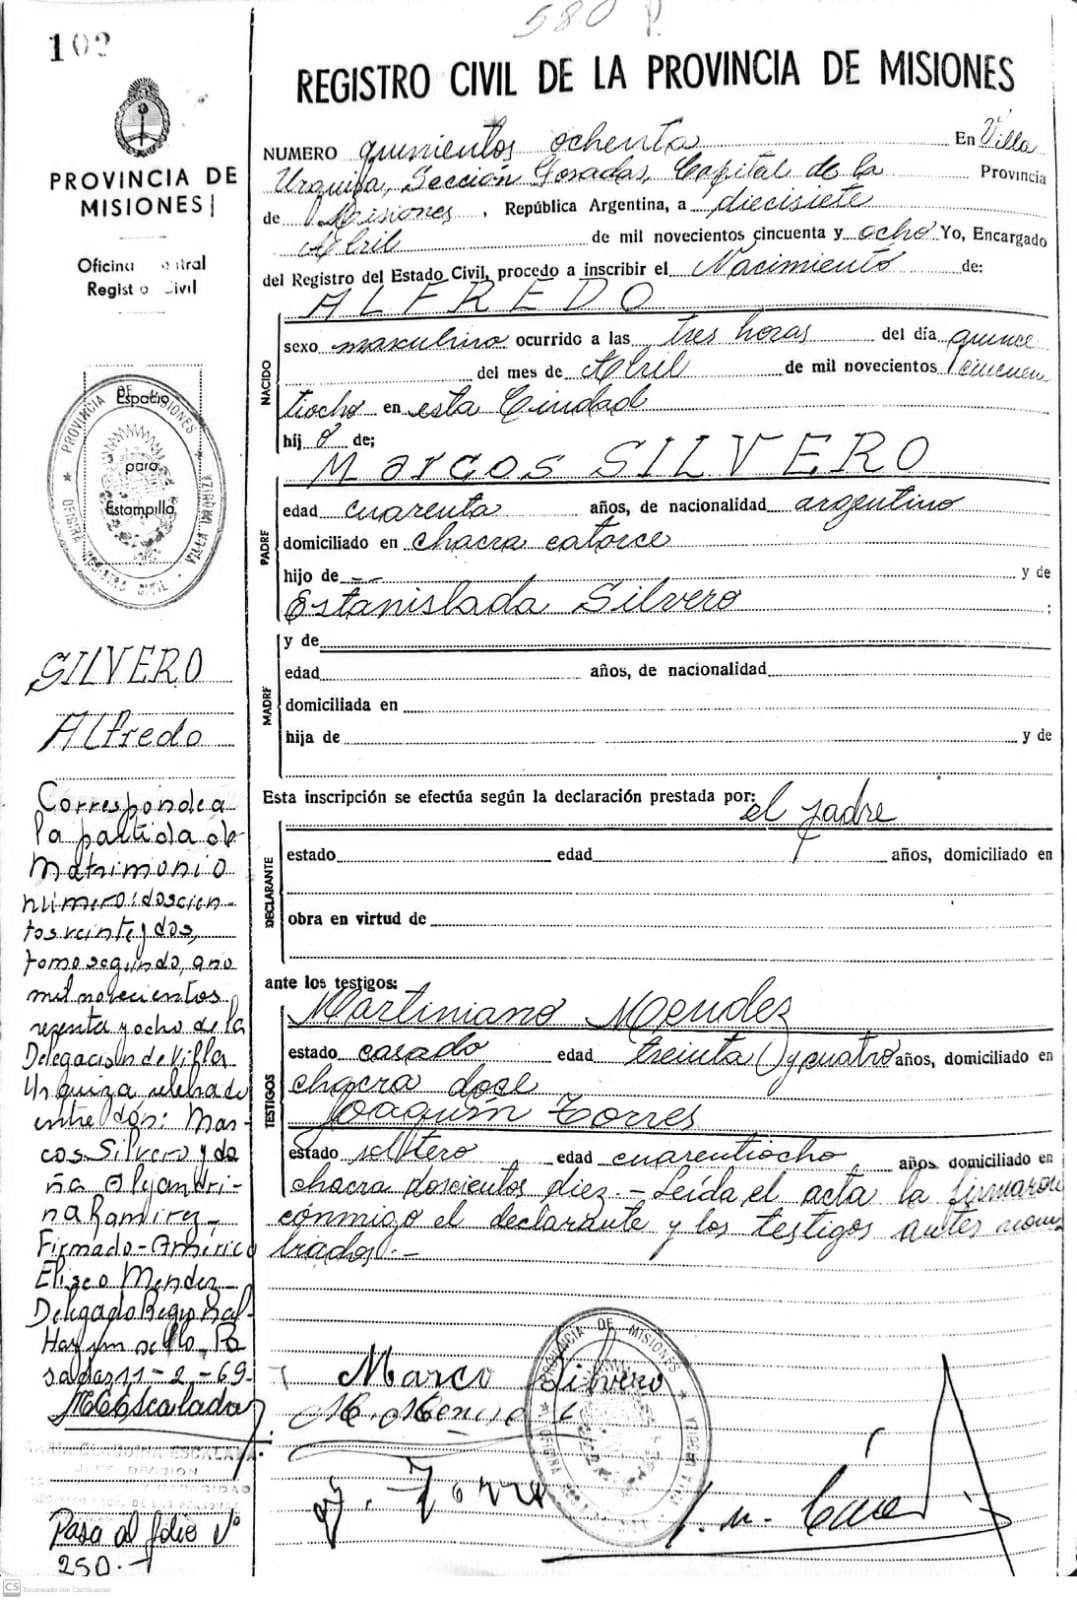 580 P.
102
REGISTRO CIVIL DE LA PROVINCIA DE MISIONES
PROVINCIA DE
MISIONES
Oficina Central
Registro Civil
NUMERO quinientos ochenta En Villa
Urquiza, Sección Posadas, Capital de la Provincia
de Misiones, República Argentina, a diecisiete
Abril de mil novecientos cincuenta y ocho Yo, Encargado
del Registro del Estado Civil, procedo a inscribir el Nacimiento de:
ALFREDO
NACIDO
sexo masculino ocurrido a las tres horas del día quince
del mes de Abril de mil novecientos cincuen-
tiocho en esta Ciudad
hij o de;
Marcos SILVERO
PADRE
edad cuarenta años, de nacionalidad argentino
domiciliado en chacra catorce
hijo de --- y de
Estanislada Silvero ;
MADRE
y de
edad años, de nacionalidad
domiciliada en
hija de y de
Esta inscripción se efectúa según la declaración prestada por: el padre
DECLARANTE
estado edad años, domiciliado en
obra en virtud de
ante los testigos:
Martiniano Mendez
TESTIGOS
estado casado edad treinta y cuatro años, domiciliado en
chacra doce
Joaquín Torres
estado soltero edad cuarentiocho años, domiciliado en
chacra doscientos diez.- Leída el acta la firmaron
conmigo el declarante y los testigos antes nom-
brados.-
Marco Silvero
M. Mendez
J. Torre
PROVINCIA DE MISIONES
Espacio
para
Estampilla
OFICINA REGISTRO CIVIL - VILLA URQUIZA
SILVERO
Alfredo
Corresponde a
la partida de
Matrimonio
número: doscien-
tos veinte y dos,
tomo segundo, año
mil novecientos
sesenta y ocho de la
Delegación de Villa
Urquiza celebrado
entre don: Mar-
cos Silvero y do
ña Alejandri-
na Ramirez-
Firmado - Américo
Eliseo Mendez-
Delegado Regional-
Hay un sello. Po
sadas 11-2-69-
MCEscalada
Pasa al folio Nº
250.-
PROVINCIA DE MISIONES
CS Escaneado con CamScanner